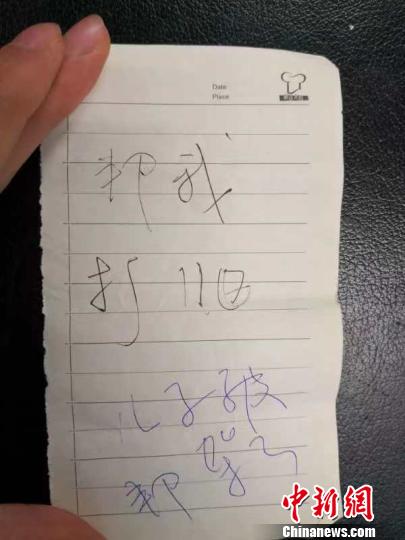 Date
Place
邦我
打110
儿子被
邦
中新网
Chinanews.com